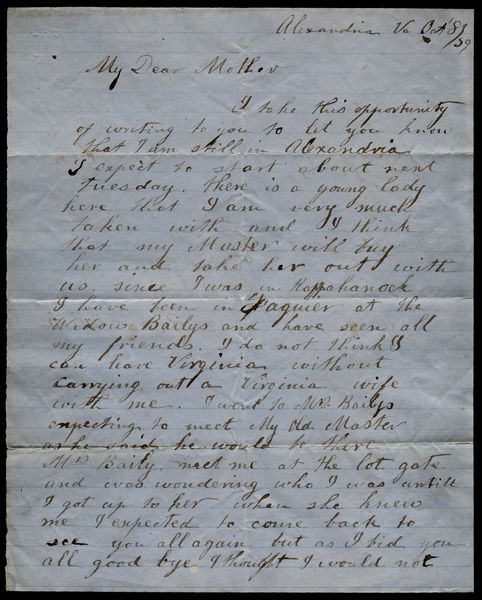 Alexandria Va Oct 8th
/59
My Dear Mother
I take this opportunity
of writing to you to let you know
that I am still in Alexandria
I expect to start about next
tuesday. there is a young lady
here that I am very much
taken with and I think
that my Master will buy
her and take her out with
us. since I was in Rappahanock
I have been in Faquier at the
Widows Bailys and have seen all
my friends. I do not think I
can leave Virginia without
carrying out a Virginia wife
with me. I went to Mrs Bailys
expecting to meet My Old Master
as he said he would be there
Mrs Baily met me at the lot gate
and was wondering who I was untill
I got up to her when she knew
me I expected to come back to
see you all again but as I bid you
all good bye I thought I would not